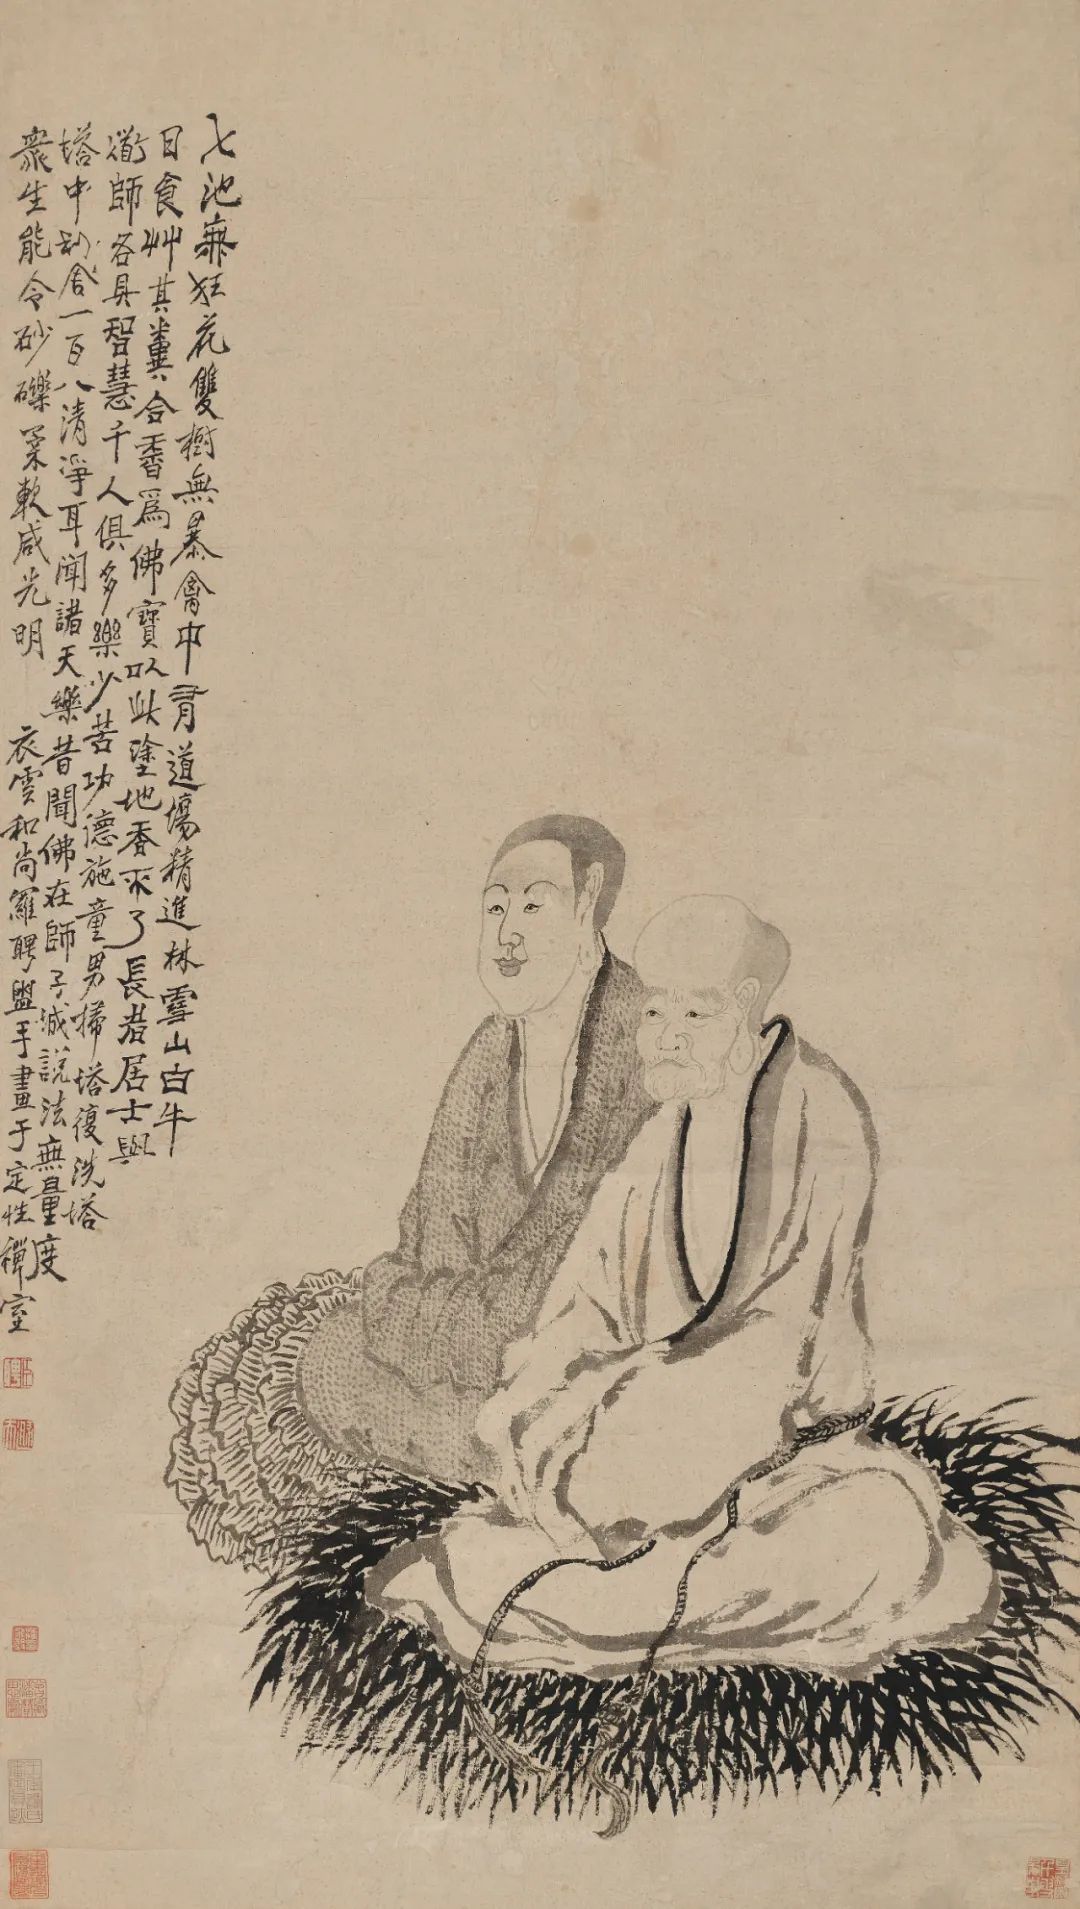 七池無狂花雙樹無暴禽中有道場精進林雪山白牛
日食艸其糞合香爲佛寶以此塗地香來了長者居士與
衜師各具智慧千人俱多樂少苦功德施童男掃塔復洗塔
塔中利舍一百八清淨耳聞諸天樂昔聞佛在師子城說法無量度
衆生能令砂礫柔軟咸光明
衣雲和尚羅聘盥手畫于定性禪室